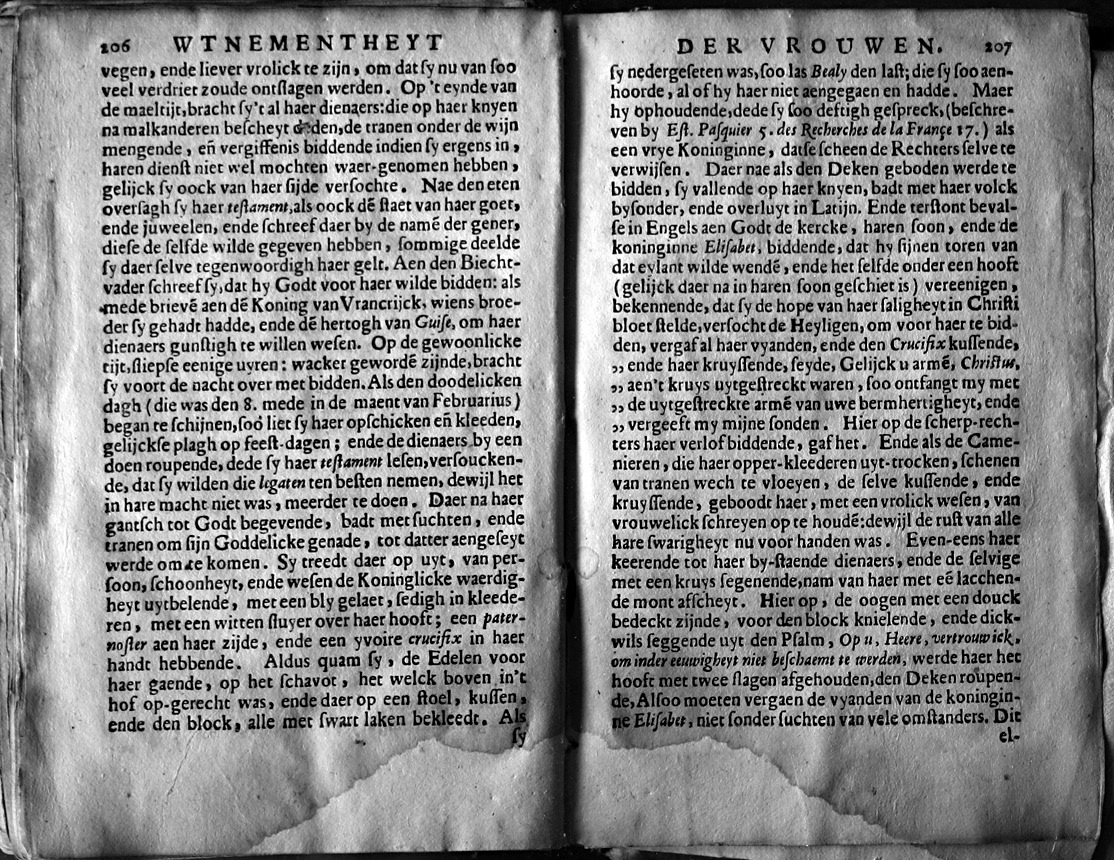 206 WTNEMENTHEYT
vegen, ende liever vrolick te zijn, om dat ſy nu van ſoo
veel verdriet zoude ontſlagen werden. Op 't eynde van
de maeltijt, bracht ſy't al haer dienaers: die op haer knyen
na malkanderen beſcheyt deden, de tranen onder de wijn
mengende, eñ vergiffenis biddende indien ſy ergens in,
haren dienſt niet wel mochten waer-genomen hebben,
gelijck ſy oock van haer ſijde verſochte. Nae den eten
overſagh ſy haer teſtament, als oock dē ſtaet van haer goet,
ende juweelen, ende ſchreef daer by de namē der gener,
dieſe de ſelfde wilde gegeven hebben, ſommige deelde
ſy daer ſelve tegenwoordigh haer gelt. Aen den Biecht-
vader ſchreef ſy, dat hy Godt voor haer wilde bidden: als
mede brievē aen dē Koning van Vrancrijck, wiens broe-
der ſy gehadt hadde, ende dē hertogh van Guiſe, om haer
dienaers gunſtigh te willen weſen. Op de gewoonlicke
tijt, ſliepſe eenige uyren: wacker gewordē zijnde, bracht
ſy voort de nacht over met bidden. Als den doodelicken
dagh (die was den 8. mede in de maent van Februarius)
began te ſchijnen, ſoo liet ſy haer opſchicken eñ kleeden,
gelijckſe plagh op feeſt-dagen; ende de dienaers by een
doen roupende, dede ſy haer teſtament leſen, verſoucken-
de, dat ſy wilden die legaten ten beſten nemen, dewijl het
in hare macht niet was, meerder te doen. Daer na haer
gantſch tot Godt begevende, badt met ſuchten, ende
tranen om ſijn Goddelicke genade, tot datter aengeſeyt
werde om te komen. Sy treedt daer op uyt, van per-
ſoon, ſchoonheyt, ende weſen de Koninglicke waerdig-
heyt uytbelende, met een bly gelaet, ſedigh in kleede-
ren, met een witten ſluyer over haer hooft; een pater-
noſter aen haer zijde, ende een yvoire crucifix in haer
handt hebbende. Aldus quam ſy, de Edelen voor
haer gaende, op het ſchavot, het welck boven in't
hof op-gerecht was, ende daer op een ſtoel, kuſſen,
ende den block, alle met ſwart laken bekleedt. Als
ſy
DER VROUWEN. 207
ſy nedergeſeten was, ſoo las Bealy den laſt; die ſy ſoo aen-
hoorde, al of hy haer niet aengegaen en hadde. Maer
hy ophoudende, dede ſy ſoo deftigh geſpreck, (beſchre-
ven by Eſt. Paſquier 5. des Recherches de la France 17.) als
een vrye Koninginne, datſe ſcheen de Rechters ſelve te
verwijſen. Daer nae als den Deken geboden werde te
bidden, ſy vallende op haer knyen, badt met haer volck
byſonder, ende overluyt in Latijn. Ende terſtont beval-
ſe in Engels aen Godt de kercke, haren ſoon, ende de
koninginne Eliſabet, biddende, dat hy ſijnen toren van
dat eylant wilde wendē, ende het ſelfde onder een hooft
(gelijck daer na in haren ſoon geſchiet is) vereenigen,
bekennende, dat ſy de hope van haer ſaligheyt in Chriſti
bloet ſtelde, verſocht de Heyligen, om voor haer te bid-
den, vergaf al haer vyanden, ende den Crucifix kuſſende,
„ ende haer kruyſſende, ſeyde, Gelijck u armē, Chriſtus,
„ aen't kruys uytgeſtreckt waren, ſoo ontfangt my met
„ de uytgeſtreckte armē van uwe bermhertigheyt, ende
„ vergeeft my mijne ſonden. Hier op de ſcherp-rech-
ters haer verlof biddende, gaf het. Ende als de Came-
nieren, die haer opper-kleederen uyt-trocken, ſchenen
van tranen wech te vloeyen, de ſelve kuſſende, ende
kruyſſende, geboodt haer, met een vrolick weſen, van
vrouwelick ſchreyen op te houdē: dewijl de ruſt van alle
hare ſwarigheyt nu voor handen was. Even-eens haer
keerende tot haer by-ſtaende dienaers, ende de ſelvige
met een kruys ſegenende, nam van haer met eē lacchen-
de mont afſcheyt. Hier op, de oogen met een douck
bedeckt zijnde, voor den block knielende, ende dick-
wils ſeggende uyt den Pſalm, Op u, Heere, vertrouw ick,
om in der eeuwigheyt niet beſchaemt te werden, werde haer het
hooft met twee ſlagen afgehouden, den Deken roupen-
de, Alſoo moeten vergaen de vyanden van de koningin-
ne Eliſabet, niet ſonder ſuchten van vele omſtanders. Dit
el-